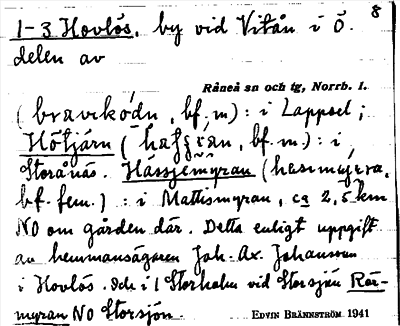 8
1-3 Hovlös, by vid Vitån i Ö.
delen av
Råneå sn och tg, Norrb. l.
(bravikódn, bf. m) : i Lappsel;
Hötjärn (              , bf. m.) : i
Storånäs. Hässjemyran (
bf. fem.) : i Mattismyran, ca 2,5 km
NO om gården där. Detta enligt uppgift
av hemmansägaren Joh. Ax. Johansson
i Hovlös. Och i 1 Storholm vid Storsjön Rör-
myran NO Storsjön.
EDVIN BRÄNNSTRÖM 1941